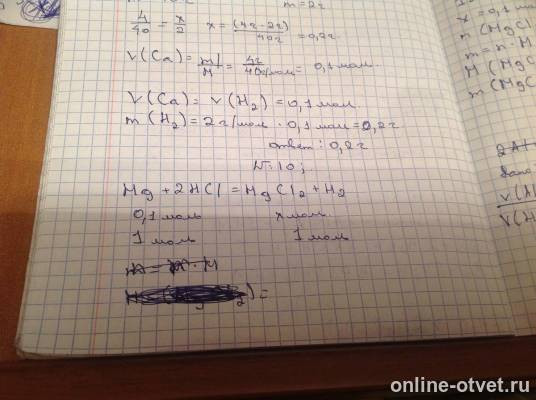 m=2г
4/40 = x/2 x = (4г·2г)/40г = 0,2г.
ν(Ca) = m/M = 4г/40г/моль = 0,1 моль.
ν(Ca) = ν(H₂) = 0,1 моль.
m(H₂) = 2г/моль · 0,1 моль = 0,2г
ответ: 0,2г
N: 10;
Mg + 2HCl = MgCl₂ + H₂
0,1 моль x моль
1 моль 1 моль
x = 0,1 м
n(MgCl
m = n · M
M(MgC
m(MgC
online-otvet.ru